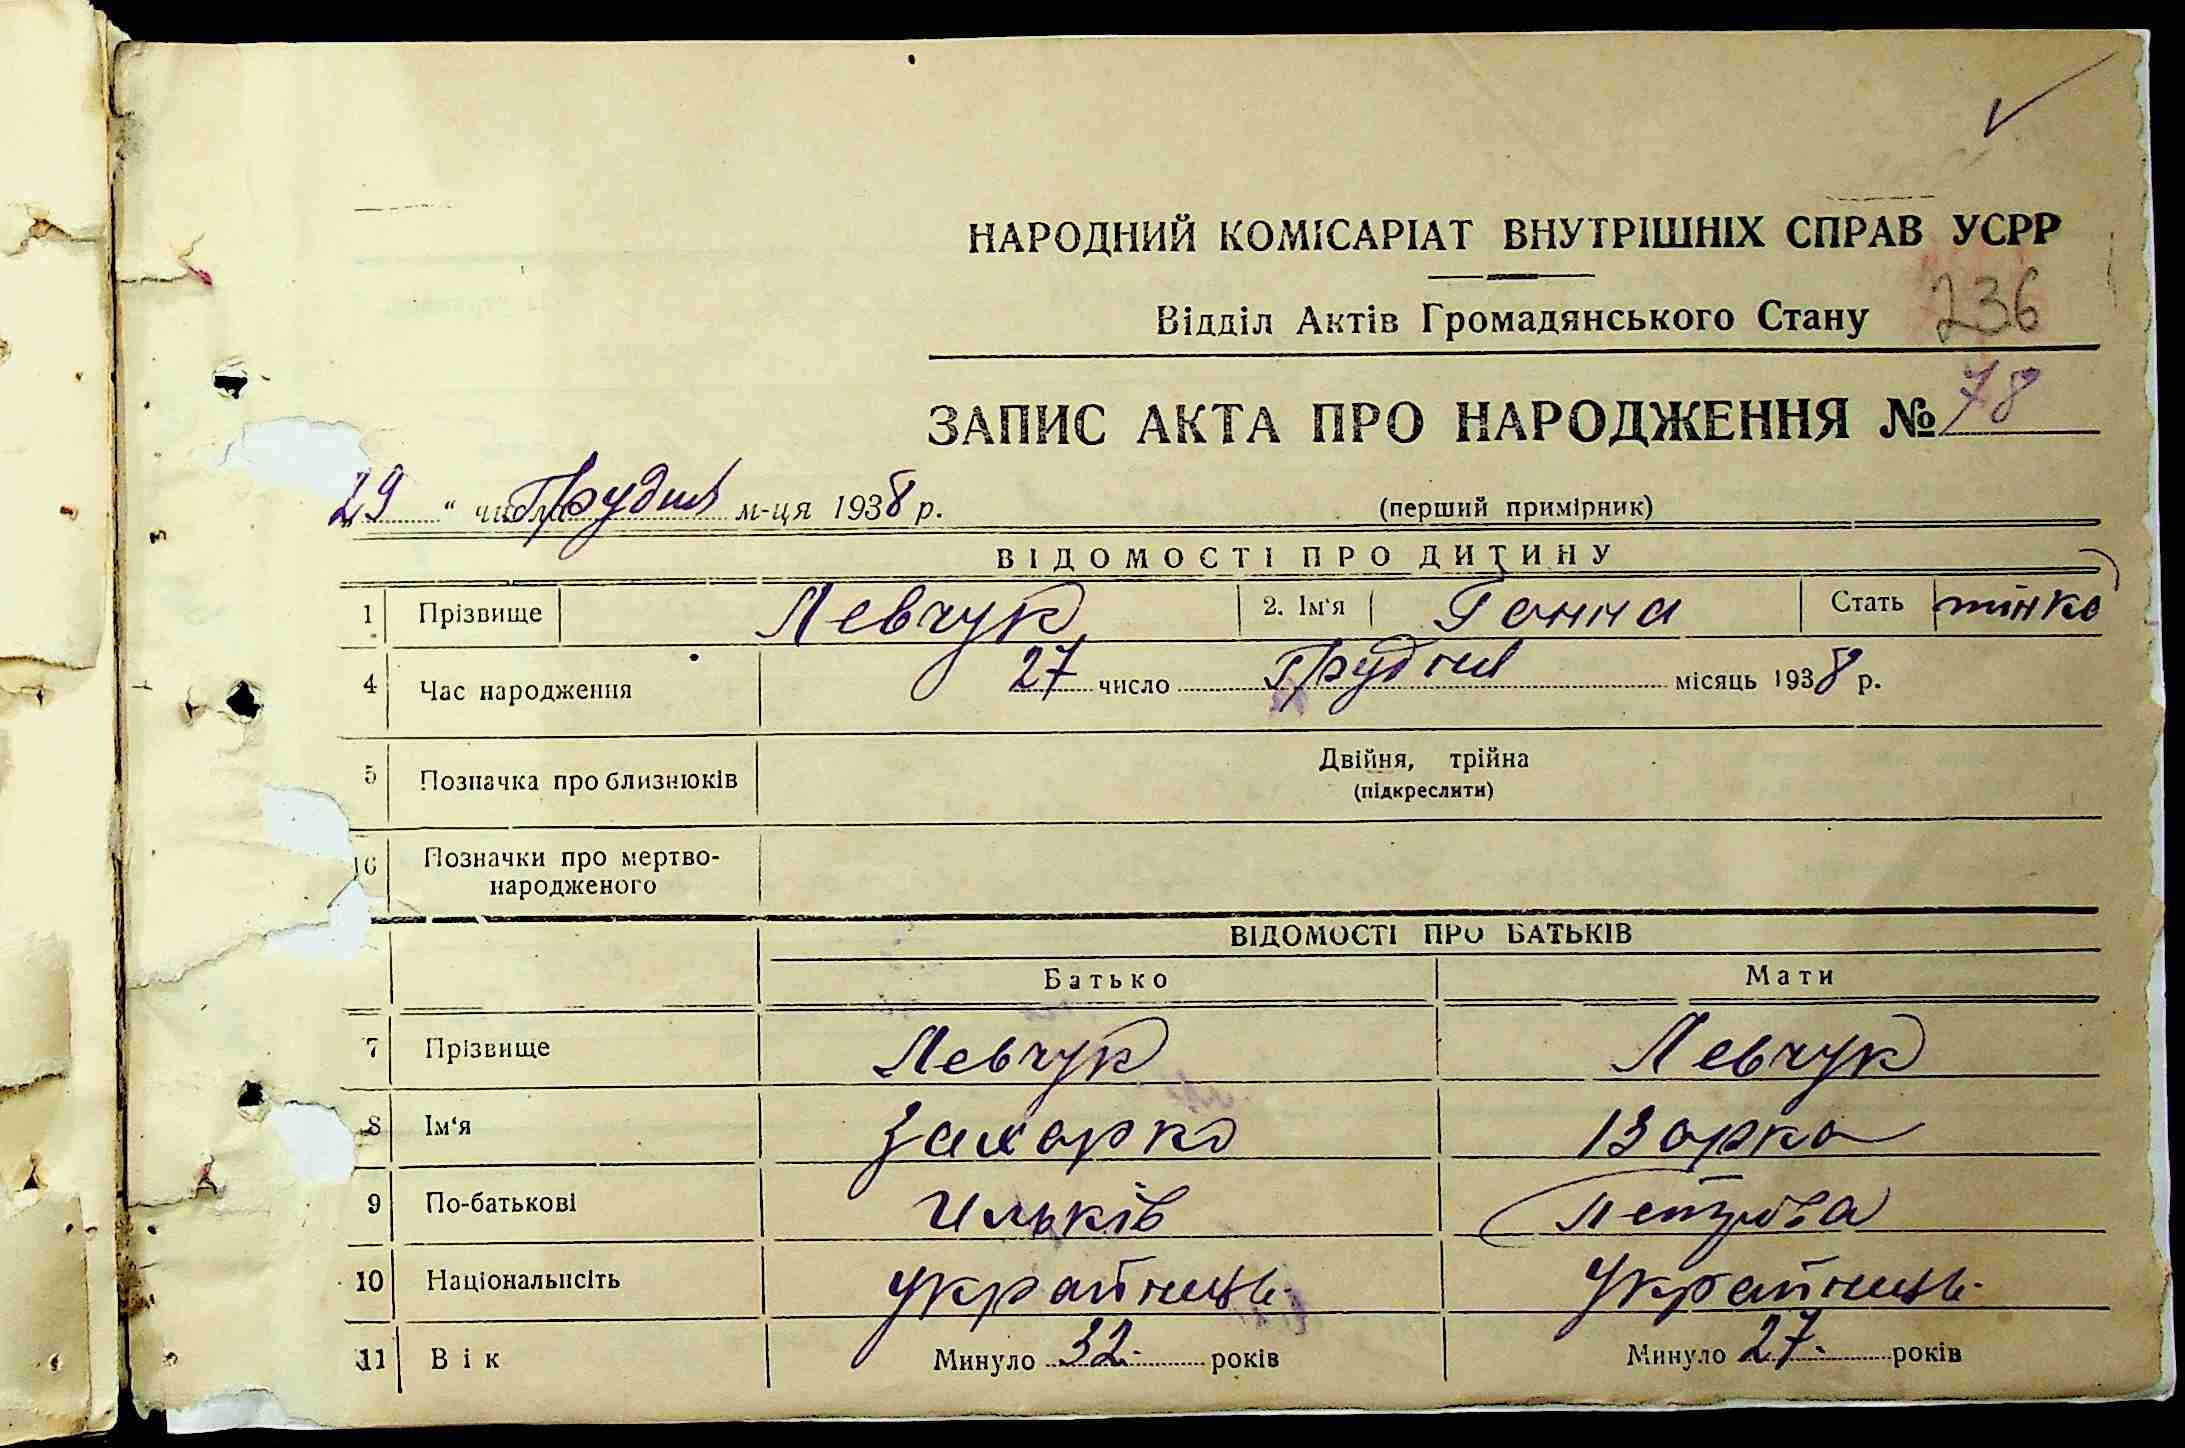 НАРОДНИЙ КОМІСАРІАТ ВНУТРІШНІХ СПРАВ УСРР
Відділ Актів Громадянського Стану 236
ЗАПИС АКТА ПРО НАРОДЖЕННЯ № 78
„29“ числа Грудня м-ця 1938 р. (перший примірник)
ВІДОМОСТІ ПРО ДИТИНУ
1 Прізвище Левчук 2. Ім‘я Ганна Стать жінка
4 Час народження 27 число Грудня місяць 1938 р.
5 Позначка про близнюків Двійня, трійна
(підкреслити)
6 Позначки про мертво-
народженого
ВІДОМОСТІ ПРО БАТЬКІВ
Батько Мати
7 Прізвище Левчук Левчук
8 Ім‘я Захарко Варка
9 По-батькові Ильків
10 Національність Українець Українець
11 Вік Минуло 32 років Минуло 27 років